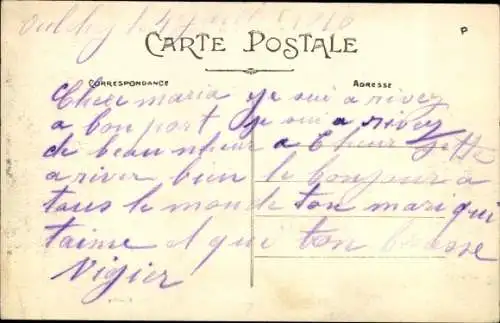 Oulchy 1916
CARTE POSTALE
P
CORRESPONDANCE
ADRESSE
Cher maria je sui a rivez
a bon port je sui a rivez
de beau a
a river bien le bonjour a
tous le monde ton mari qui
t'aime et qui ton brasse
Vigier